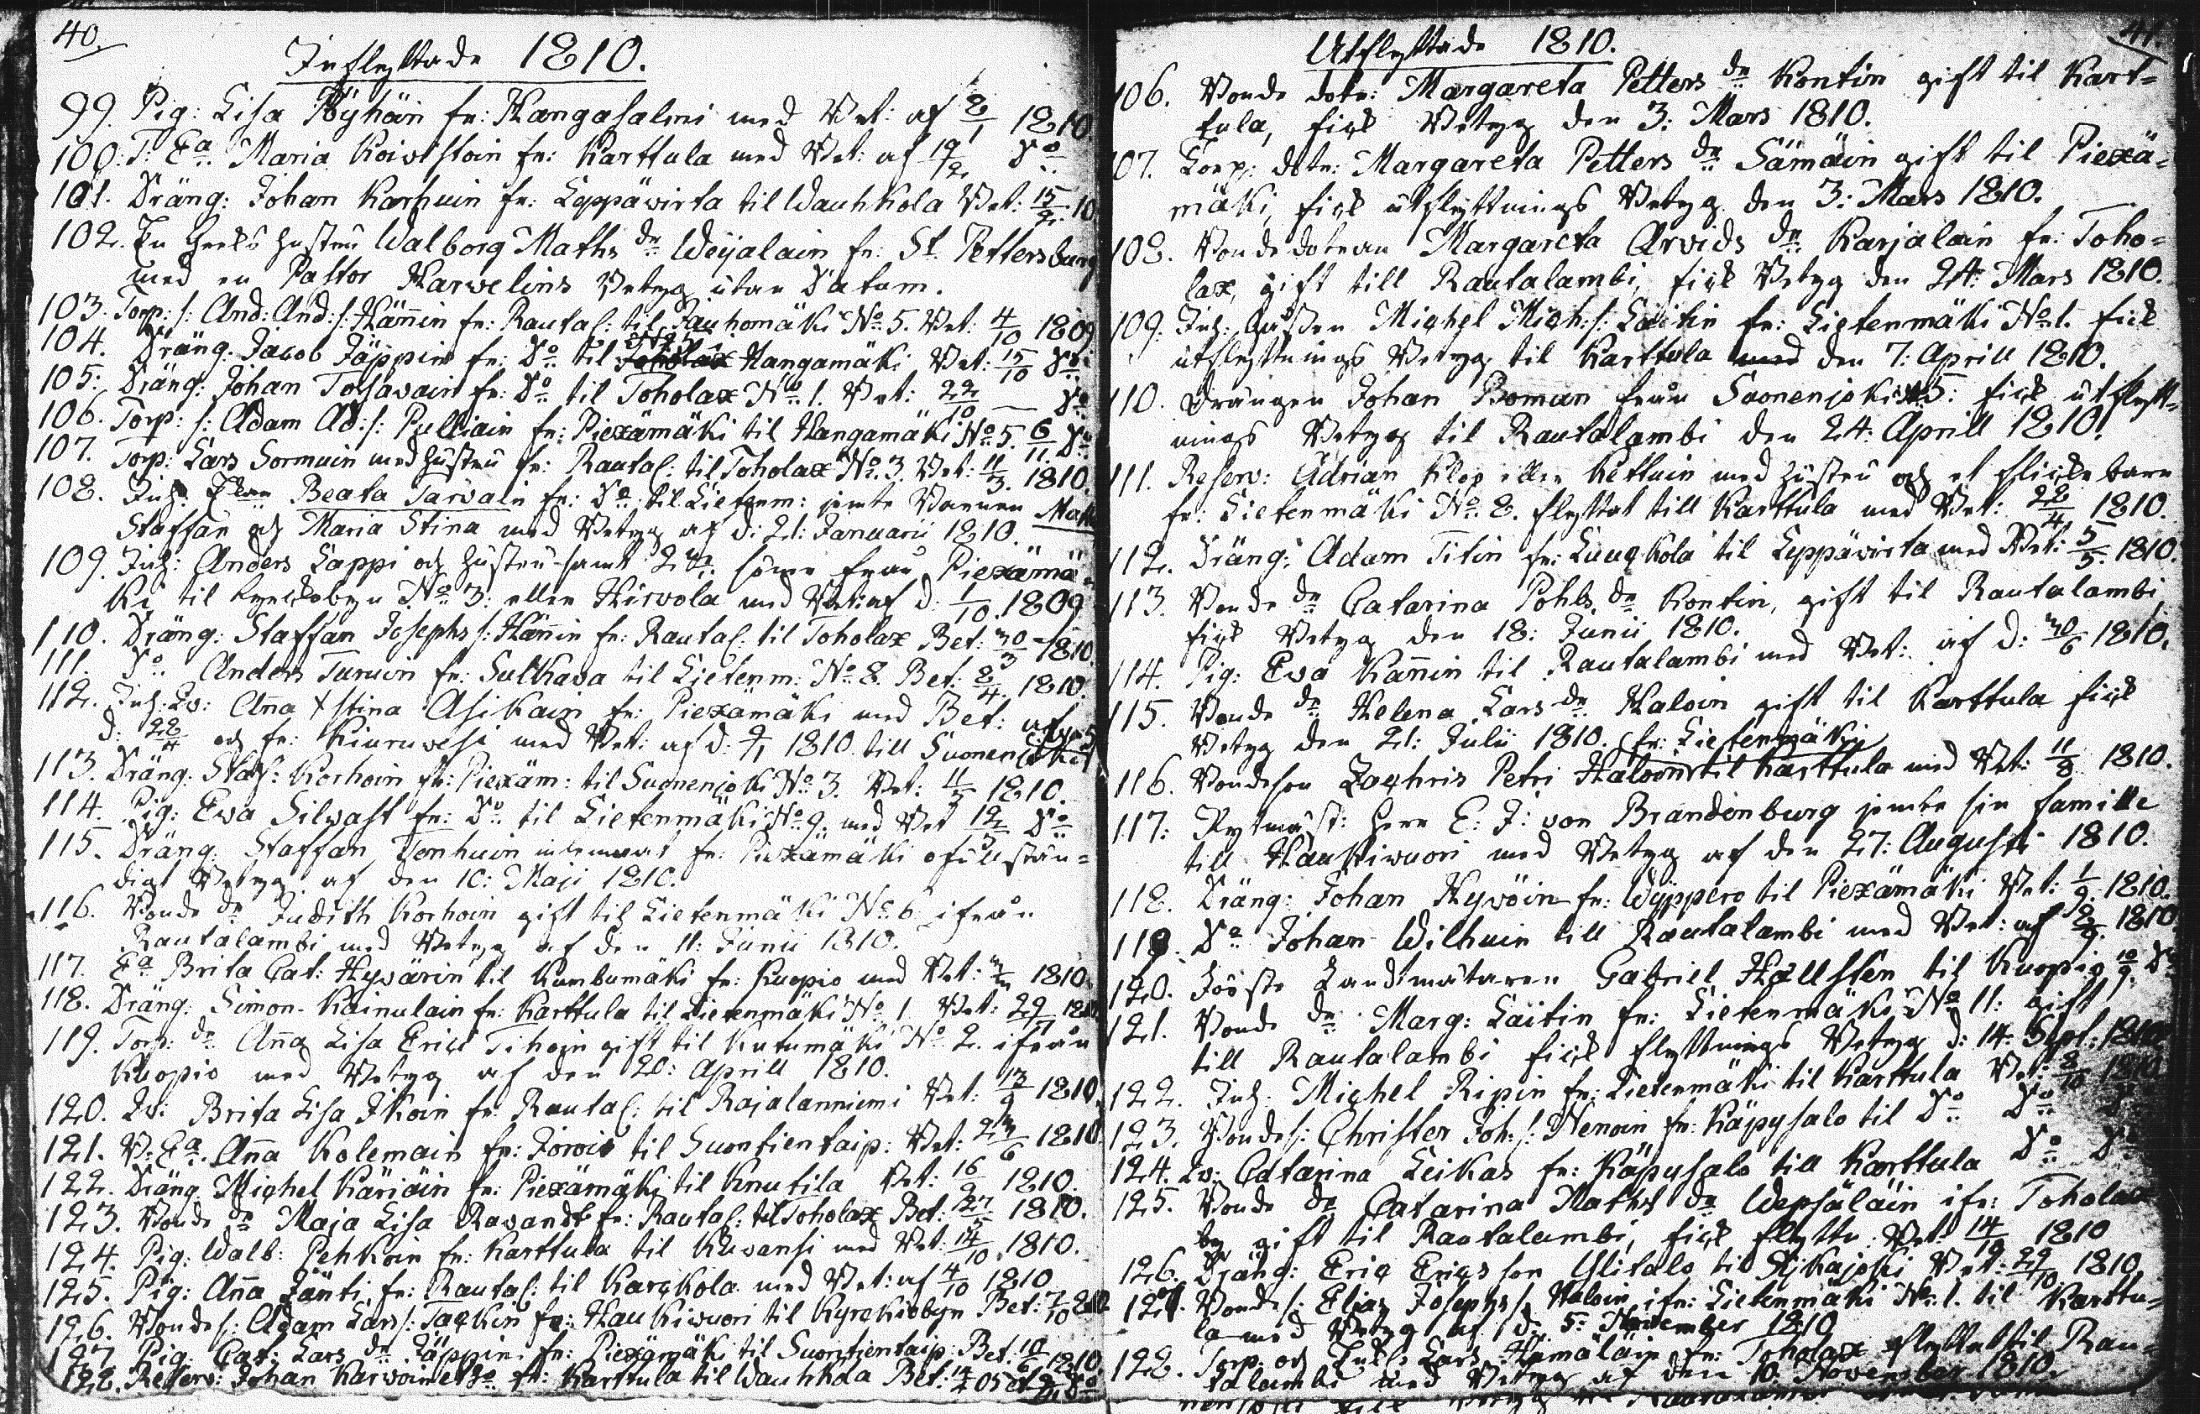 40.
Inflyttade 1810.
99. Pig: Lisa Pöyhöin fr: Kangasalmi med Bet: af 8/1 1810.
100. T: Ea. Maria Koivistoin fr: Karttula med Bet: af 19/2 Do
101. Dräng: Johan Karhuin fr: Leppävirta til Wauhkola Bet: 15/2. 10
102. En Hustru Walborg Maths dr Weijalain fr: St. Pettersburg
med en Pastor Harwelins Betyg utan Datum.
103. Torp: s: And: And: s: Hännin fr: Rautal: til Rauhomäki No. 5. Bet: 4/10 1809
104. Dräng: Jacob Jäppin fr: Do til Hangamäki Bet: 15/10 Do
105. Dräng: Johan Tossavain fr: Do til Toholax No. 1. Bet: 22/10 — Do
106. Torp: s: Adam Ad: s: Pulliain fr: Piexämäki til Hangamäki No 5. 6/11. Do
107. Torp: Lars Sormuin med Hustru fr: Rautal: til Toholax No. 3. Bet: 11/3. 1810.
108. Inh: Beata Tarvain fr: Do til Lietenm: jemte Barnen Math
Staffan och Maria Stina med Betyg af d: 21: Januarii 1810.
109. Inh: Anders Lappi och Hustru samt 2 söner från Piexämä=
ki til Kyrckobyn No 3: eller Hirvola med Bet: af d. 1/10. 1809
110. Dräng: Staffan Josephs s: Hännin fr: Rautal: til Toholax Bet: 30/3 1810.
111. Do Anders Turuin fr: Sulkava til Lietenm: No 8. Bet: 8/4. 1810.
112. Inh: Änk: Anna Stina Asikain fr: Piexämäki med Bet: af
d: 22/4 och fr: Kiuruvesi med Bet: af d: 9/1 1810. till Suonenjoki
113. Dräng: Staf: Korhoin fr: Piexäm: til Suonenjoki No 3. Bet: 11/5 1810.
114. Pig: Ewa Silvast fr: Do til Lietenmäki No 9. med Bet 12/5 Do
115. Dräng: Staffan Tenhuin fr: Piexämäki ofullstän=
digt Betyg af den 10: Maji 1810.
116. Bonde dr Judith Korhoin gift til Lietenmäki No 6 ifrån
Rautalambi med Betyg af den 11: Junii 1810.
117. Ea Brita Cat: Hyvärin til Kumbumäki fr: Kuopio med Bet: 1810
118. Dräng: Simon Kainulain fr: Karttula til Lietenmäki No 1. Bet: 29/ 1810
119. Torp: dr Anna Lisa Erici Tihoin gift til Kutumäki No 2. ifrån
Kuopio med Betyg af den 20: Aprill 1810.
120. Brita Lisa Ikoin fr: Rautal: til Rajalanniemi Bet: 13/9 1810.
121. Anna Kolemain fr: Jorois til Suontientaip: Bet: 23/6 1810
122. Dräng: Michel Käriäin fr: Piexämäki til Knutila Bet: 16/9 1810.
123. Bonde dr Maja Lisa Ravandt fr: Rautal: til Toholax Bet: 27/5 1810.
124. Pig: Walb: Pehkoin fr: Karttula til Kuvansi med Bet: 14/10 1810.
125. Pig: Anna Jänti fr: Rautal: til Karckola med Bet: af 4/10 1810
126. Bonde s: Adam Lars s: Tackin fr: Haukivuori til Kyrckiobyn Bet: 7/10
127. Pig: Cat: Lars dr Läppin fr: Piexämäki til Suontientaip: Bet. 10/ 1810
128. Reserv: Johan Karvoin fr: Karttula til Wauhkola Bet: Do
41.
Utflyttade 1810.
106. Bonde dotr: Margareta Petters dr Kontin gift til Kart=
tula, fick Betyg den 3: Mars 1810.
107. Torp: dotr: Margareta Petters dr Sämäin gift til Piexä=
mäki, fick utflyttnings Betyg den 3: Mars 1810.
108. Bonde dotran Margareta Arvids dr Karjalain fr: Toho=
lax, gift till Rautalambi, fick Betyg den 24: Mars 1810.
109. Inh: Michel Mich: s: Laitin fr: Lietenmäki No 1. fick
utflyttnings Betyg til Karttula den 7: Aprill 1810.
110. Drängen Johan Boman från Suonenjoki No 5: fick utflytt=
nings Betyg til Rautalambi den 24: Aprill 1810.
111. Reserv: Adrian Klop eller Kettuin med Hustru och et flicke barn
fr: Lietenmäki No. 8. flyttat till Karttula med Bet: 28/4 1810.
112. Dräng: Adam Titin fr: Luuckola til Leppävirta med Bet: 5/5. 1810.
113. Bonde dr Catarina Pohls dr Kontin, gift til Rautalambi
fick Betyg den 18: Junii 1810.
114. Pig: Eva Kannin til Rautalambi med Bet: af d: 30/6 1810.
115. Bonde dr Helena Lars dr Haloin gift til Karttula fick
Betyg den 21: Julii 1810. fr: Lietenmäki
116. Bondeson Zachris Petri Haloin til Karttula med Bet: 11/8 1810.
117. Rytmäst: Herr E: J: von Brandenburg jemte sin famille
till Haukivuori med Betyg af den 27: Augusti 1810.
118. Dräng: Johan Hyvöin fr: Wyppero til Piexämäki Bet: 1/9. 1810.
119. Do Johan Wilhuin till Rautalambi med Bet: af 8/9. 1810
120. Landtmätaren Gabriel Hällsten til Kuopio 10/9. Do
121. Bonde dr Marg: Laitin fr: Lietenmäki No 11: gift
till Rautalambi fick flyttnings Betyg d: 14. Sept: 1810
122. Inh: Michel Ripin fr: Lietenmäki til Karttula Bet: 8/10 1810
123. Bonde s: Christer Joh: s: Nenoin fr: Käpysalo til Do Do Do
124. Catarina Leikas fr: Käpysalo till Karttula Do Do
125. Bonde dr Catarina Maths dr Wepsäläin ifr: Toholax
by gift til Rautalambi, fick flyttn: Bet: 14/10 1810
126. Dräng: Eric Ericsson Ylitalo til Bet: 29/10. 1810.
127. Bonde s: Elias Josephs s: Haloin ifr: Lietenmäki No. 1. til Karttu=
la med Betyg af d. 5: November 1810
128. Torp: och Lars Hämäläin fr: Toholax flyttat til Rau=
talambi med Betyg af den 10. November 1810.